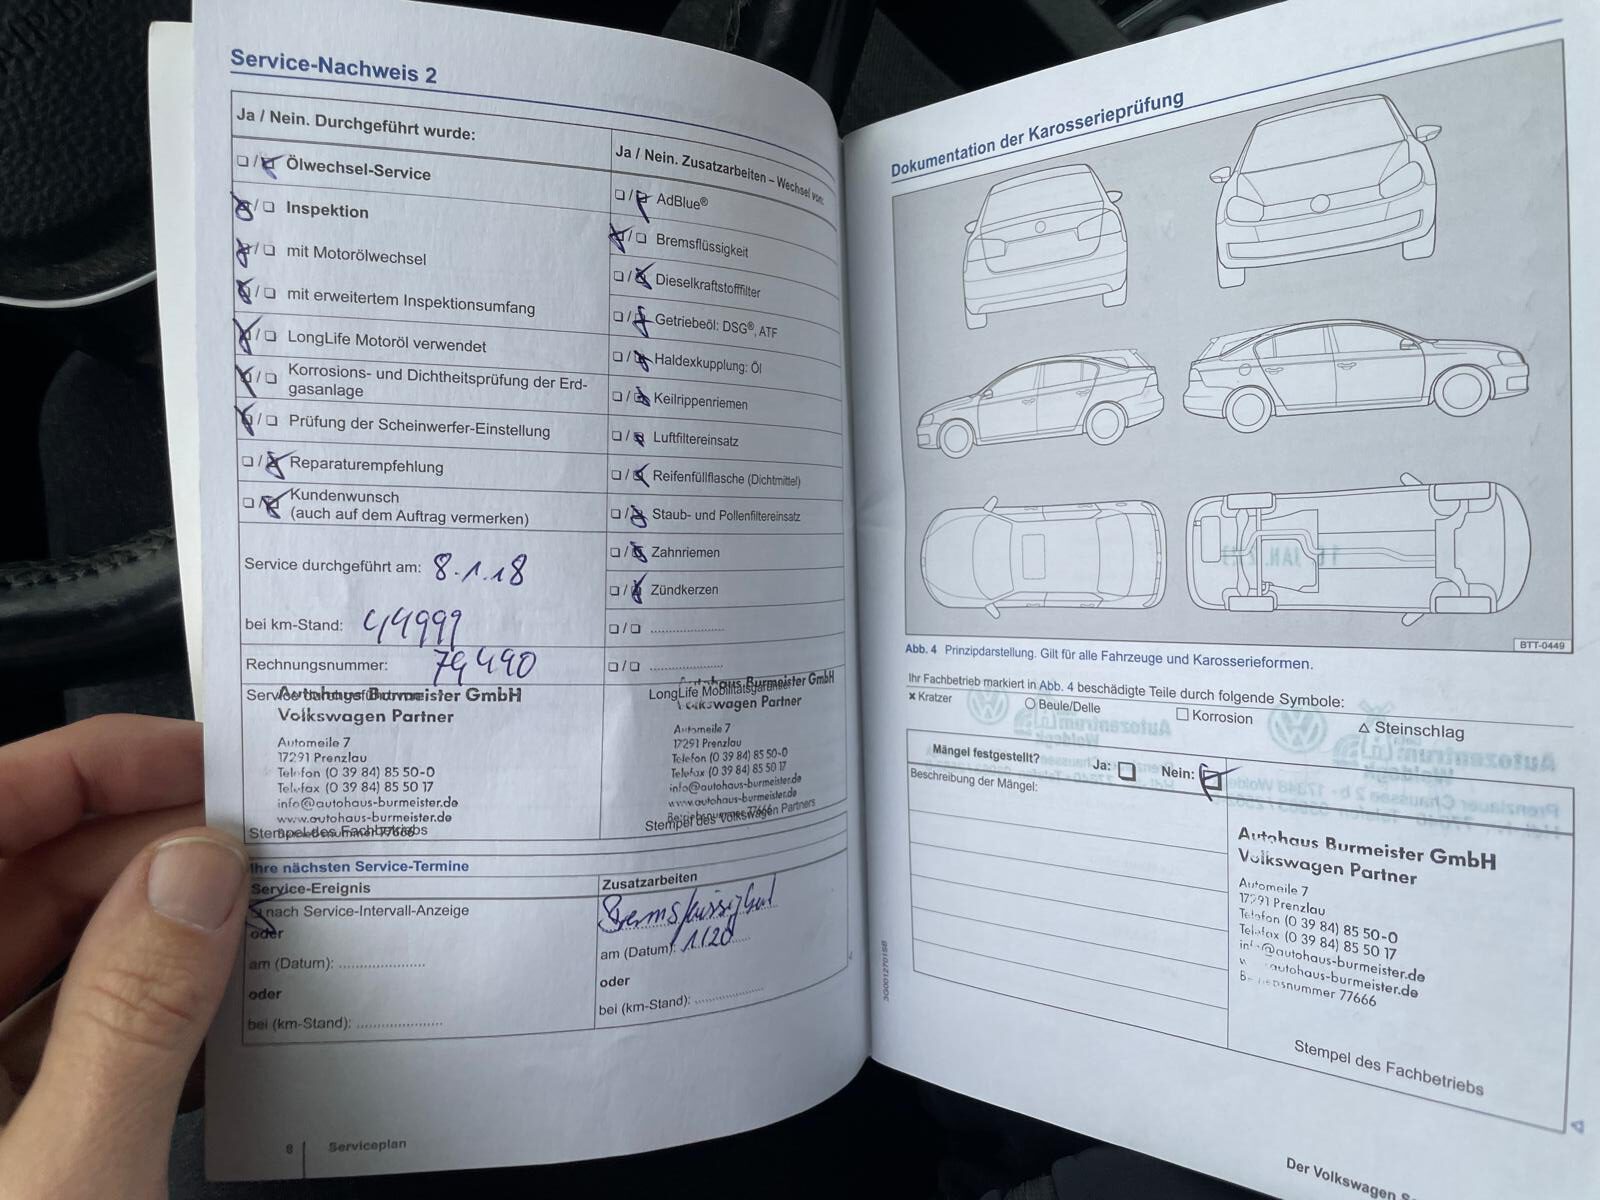 Service-Nachweis 2
Ja / Nein. Durchgeführt wurde:
❏ / ❏ Ölwechsel-Service
❏ / ❏ Inspektion
❏ / ❏ mit Motorölwechsel
❏ / ❏ mit erweitertem Inspektionsumfang
❏ / ❏ LongLife Motoröl verwendet
❏ / ❏ Korrosions- und Dichtheitsprüfung der Erd-
gasanlage
❏ / ❏ Prüfung der Scheinwerfer-Einstellung
❏ / ❏ Reparaturempfehlung
❏ / ❏ Kundenwunsch
(auch auf dem Auftrag vermerken)
Service durchgeführt am: 8.1.18
bei km-Stand: 44999
Rechnungsnummer: 79490
Autohaus Burmeister GmbH
Volkswagen Partner
Automeile 7
17291 Prenzlau
Telefon (0 39 84) 85 50-0
Telefax (0 39 84) 85 50 17
info@autohaus-burmeister.de
www.autohaus-burmeister.de
Stempel des Fachbetriebs
Ja / Nein. Zusatzarbeiten – Wechsel von:
❏ / ❏ AdBlue®
❏ / ❏ Bremsflüssigkeit
❏ / ❏ Dieselkraftstofffilter
❏ / ❏ Getriebeöl: DSG®, ATF
❏ / ❏ Haldexkupplung: Öl
❏ / ❏ Keilrippenriemen
❏ / ❏ Luftfiltereinsatz
❏ / ❏ Reifenfüllflasche (Dichtmittel)
❏ / ❏ Staub- und Pollenfiltereinsatz
❏ / ❏ Zahnriemen
❏ / ❏ Zündkerzen
❏ / ❏ ....................
❏ / ❏ ....................
Autohaus Burmeister GmbH
LongLife Mobilitätsgarantie
Volkswagen Partner
Automeile 7
17291 Prenzlau
Telefon (0 39 84) 85 50-0
Telefax (0 39 84) 85 50 17
info@autohaus-burmeister.de
www.autohaus-burmeister.de
Betriebsnummer 77666
Stempel des Volkswagen Partners
Ihre nächsten Service-Termine
Service-Ereignis
nach Service-Intervall-Anzeige
oder
am (Datum): ....................
oder
bei (km-Stand): ....................
Zusatzarbeiten
Bremsflüssigkeit
am (Datum): 1/20
oder
bei (km-Stand): ....................
8 Serviceplan
Dokumentation der Karosserieprüfung
BTT-0449
Abb. 4 Prinzipdarstellung. Gilt für alle Fahrzeuge und Karosserieformen.
Ihr Fachbetrieb markiert in Abb. 4 beschädigte Teile durch folgende Symbole:
× Kratzer ○ Beule/Delle □ Korrosion △ Steinschlag
Mängel festgestellt? Ja: ❏ Nein: ❏
Beschreibung der Mängel:
Autohaus Burmeister GmbH
Volkswagen Partner
Automeile 7
17291 Prenzlau
Telefon (0 39 84) 85 50-0
Telefax (0 39 84) 85 50 17
info@autohaus-burmeister.de
autohaus-burmeister.de
77666
Stempel des Fachbetriebs
3G0012701SB
Der Volkswagen